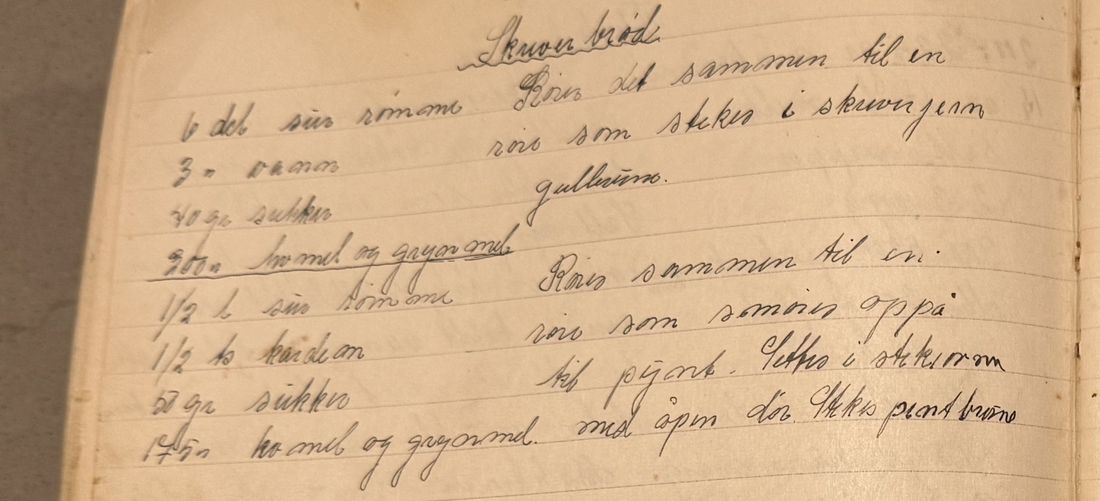 Skruver brød
6 del sur rømme Røres det sammen til en
3 " vann røre som stekes i skruverjern
40 gr sukker gulbrune.
200 " hv mel og grynmel
1/2 l sur rømme Røres sammen til en
1/2 ts kardem røre som smøres oppå
50 gr sukker til pynt. Settes i stekeovnen
175 " hv mel og grynmel. med åpen dør. Stekes pent brune